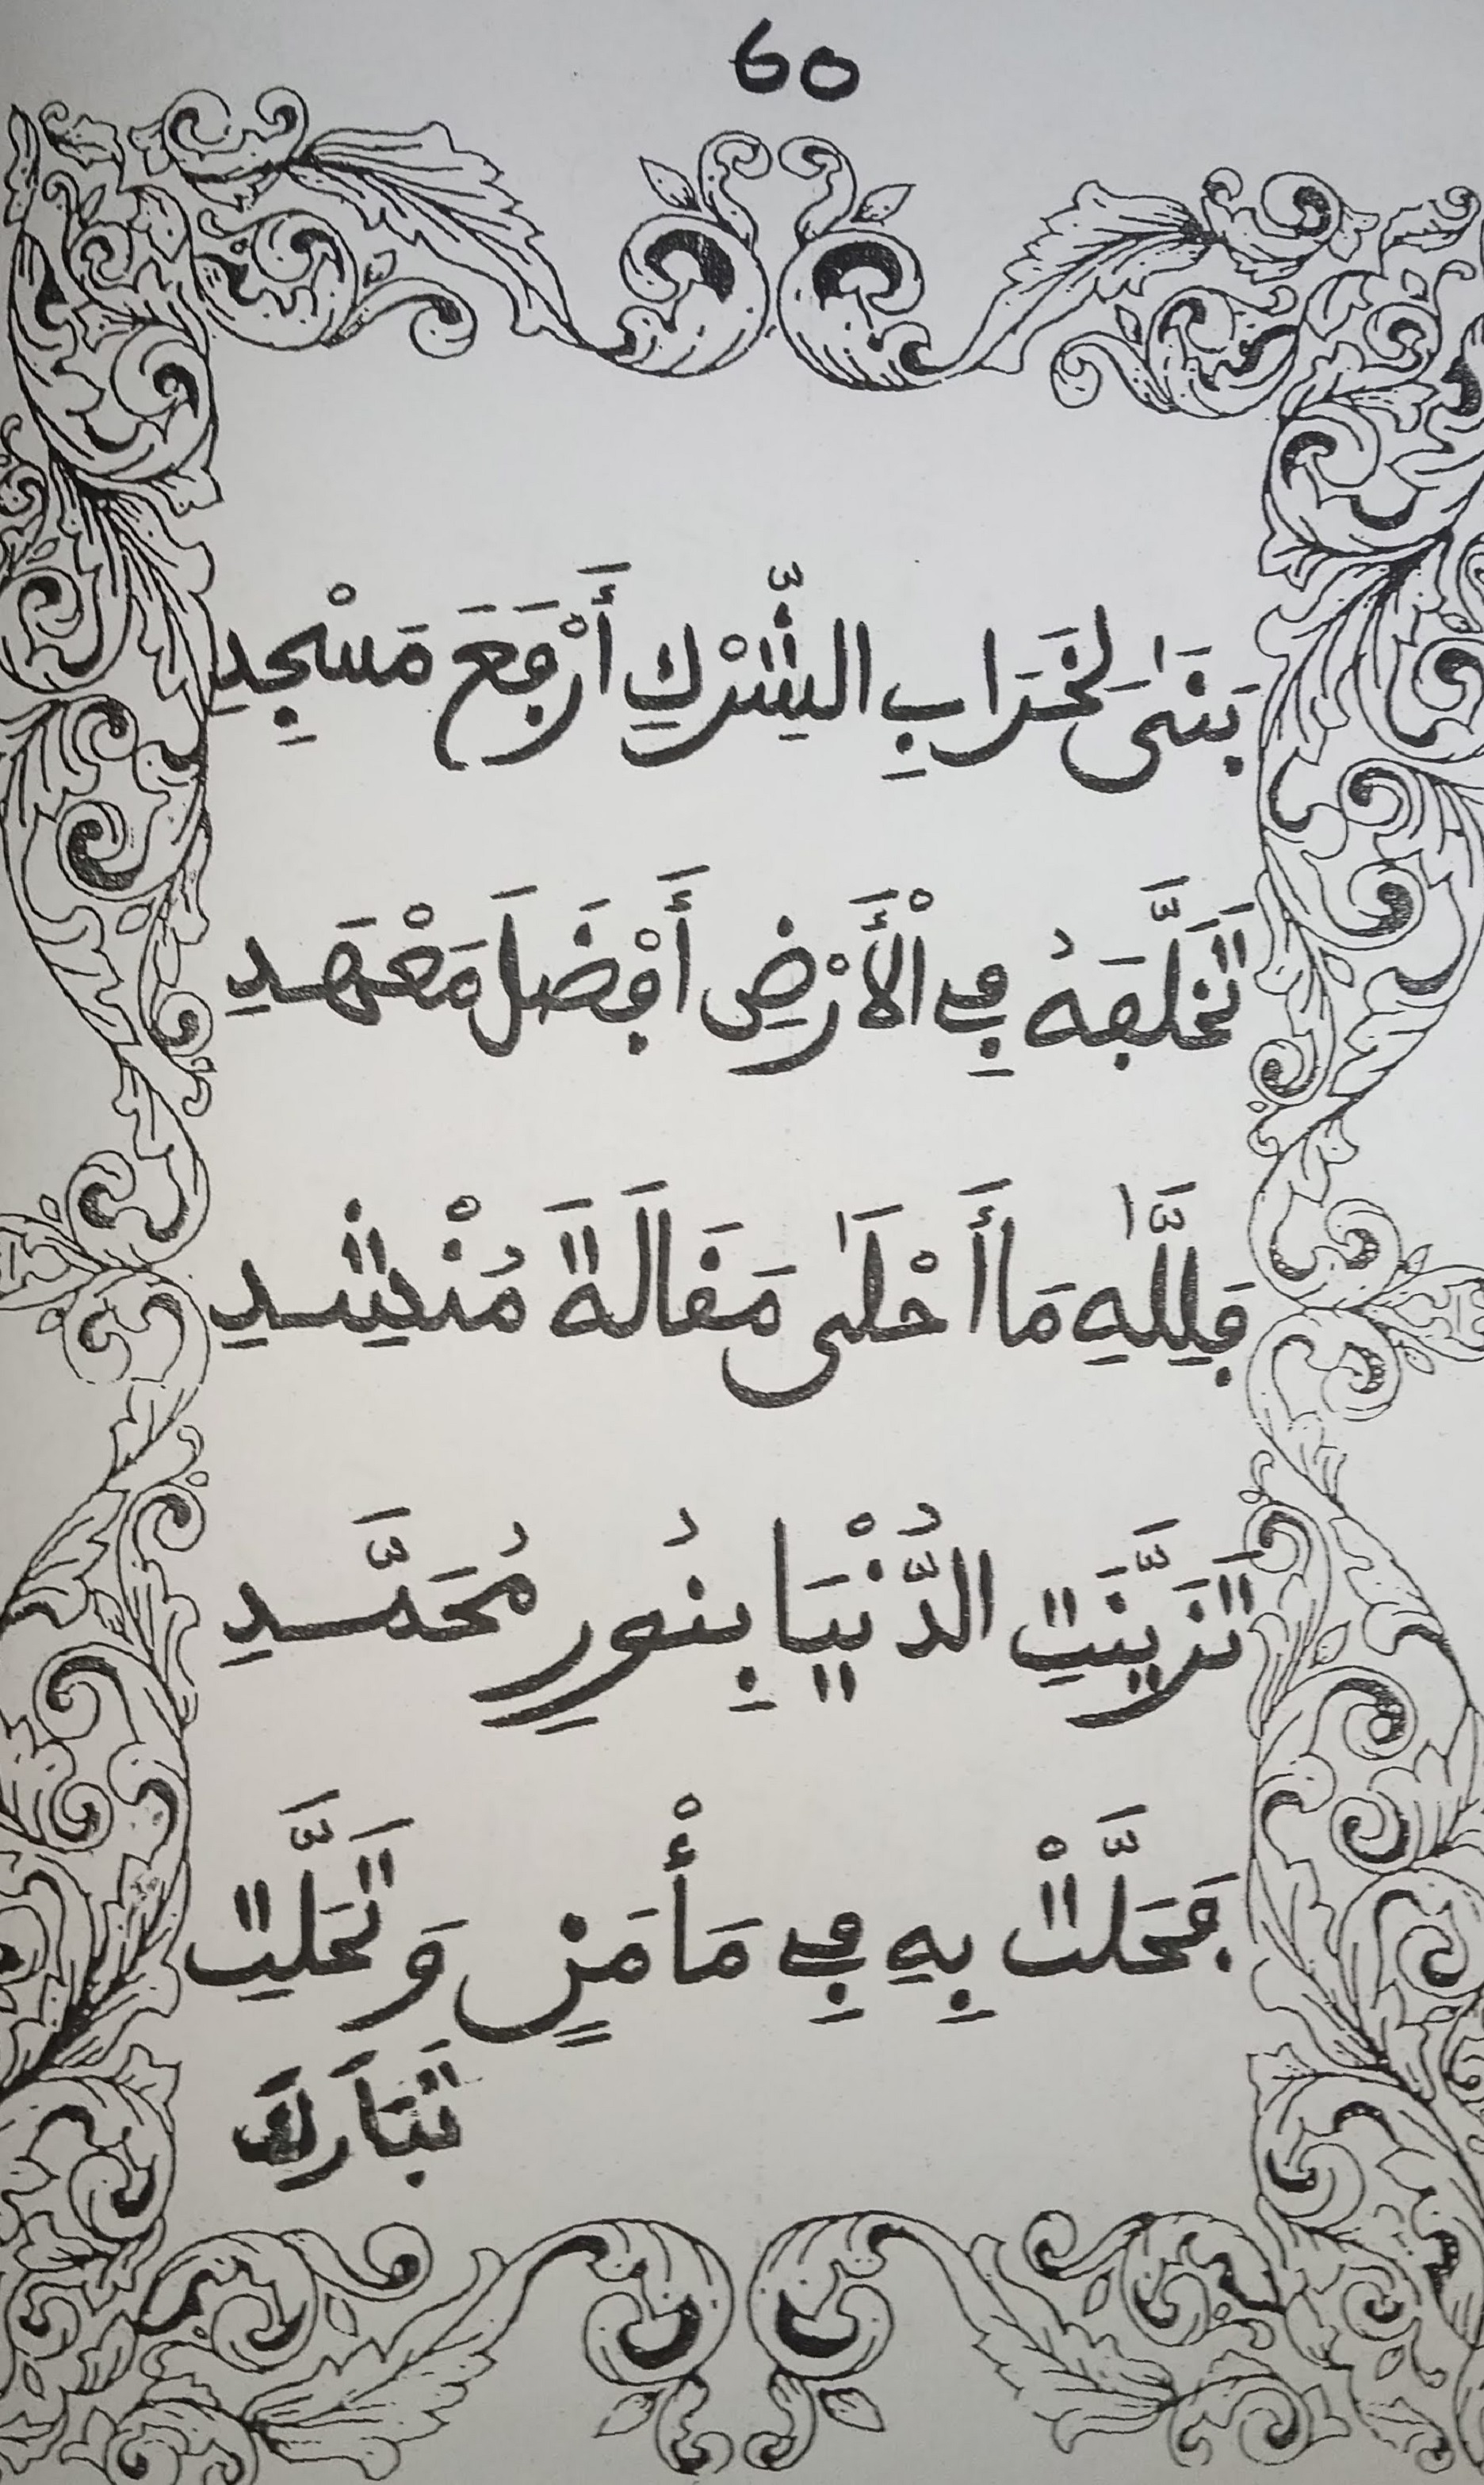 60
بَنَىٰ لِخَرَابِ الشِّرْكِ أَرْفَعَ مَسْجِدِ
تَخَلَّفَهُ فِي الْأَرْضِ أَفْضَلَ مَعْهَدِ
فَلِلَّٰهِ مَا أَحْلَىٰ مَقَالَةَ مُنْشِدِ
تَزَيَّنَتِ الدُّنْيَا بِنُورِ مُحَمَّدِ
فَحَلَّتْ بِهِ فِي مَأْمَنٍ وَتَحَلَّتِ
تَبَارَكَ